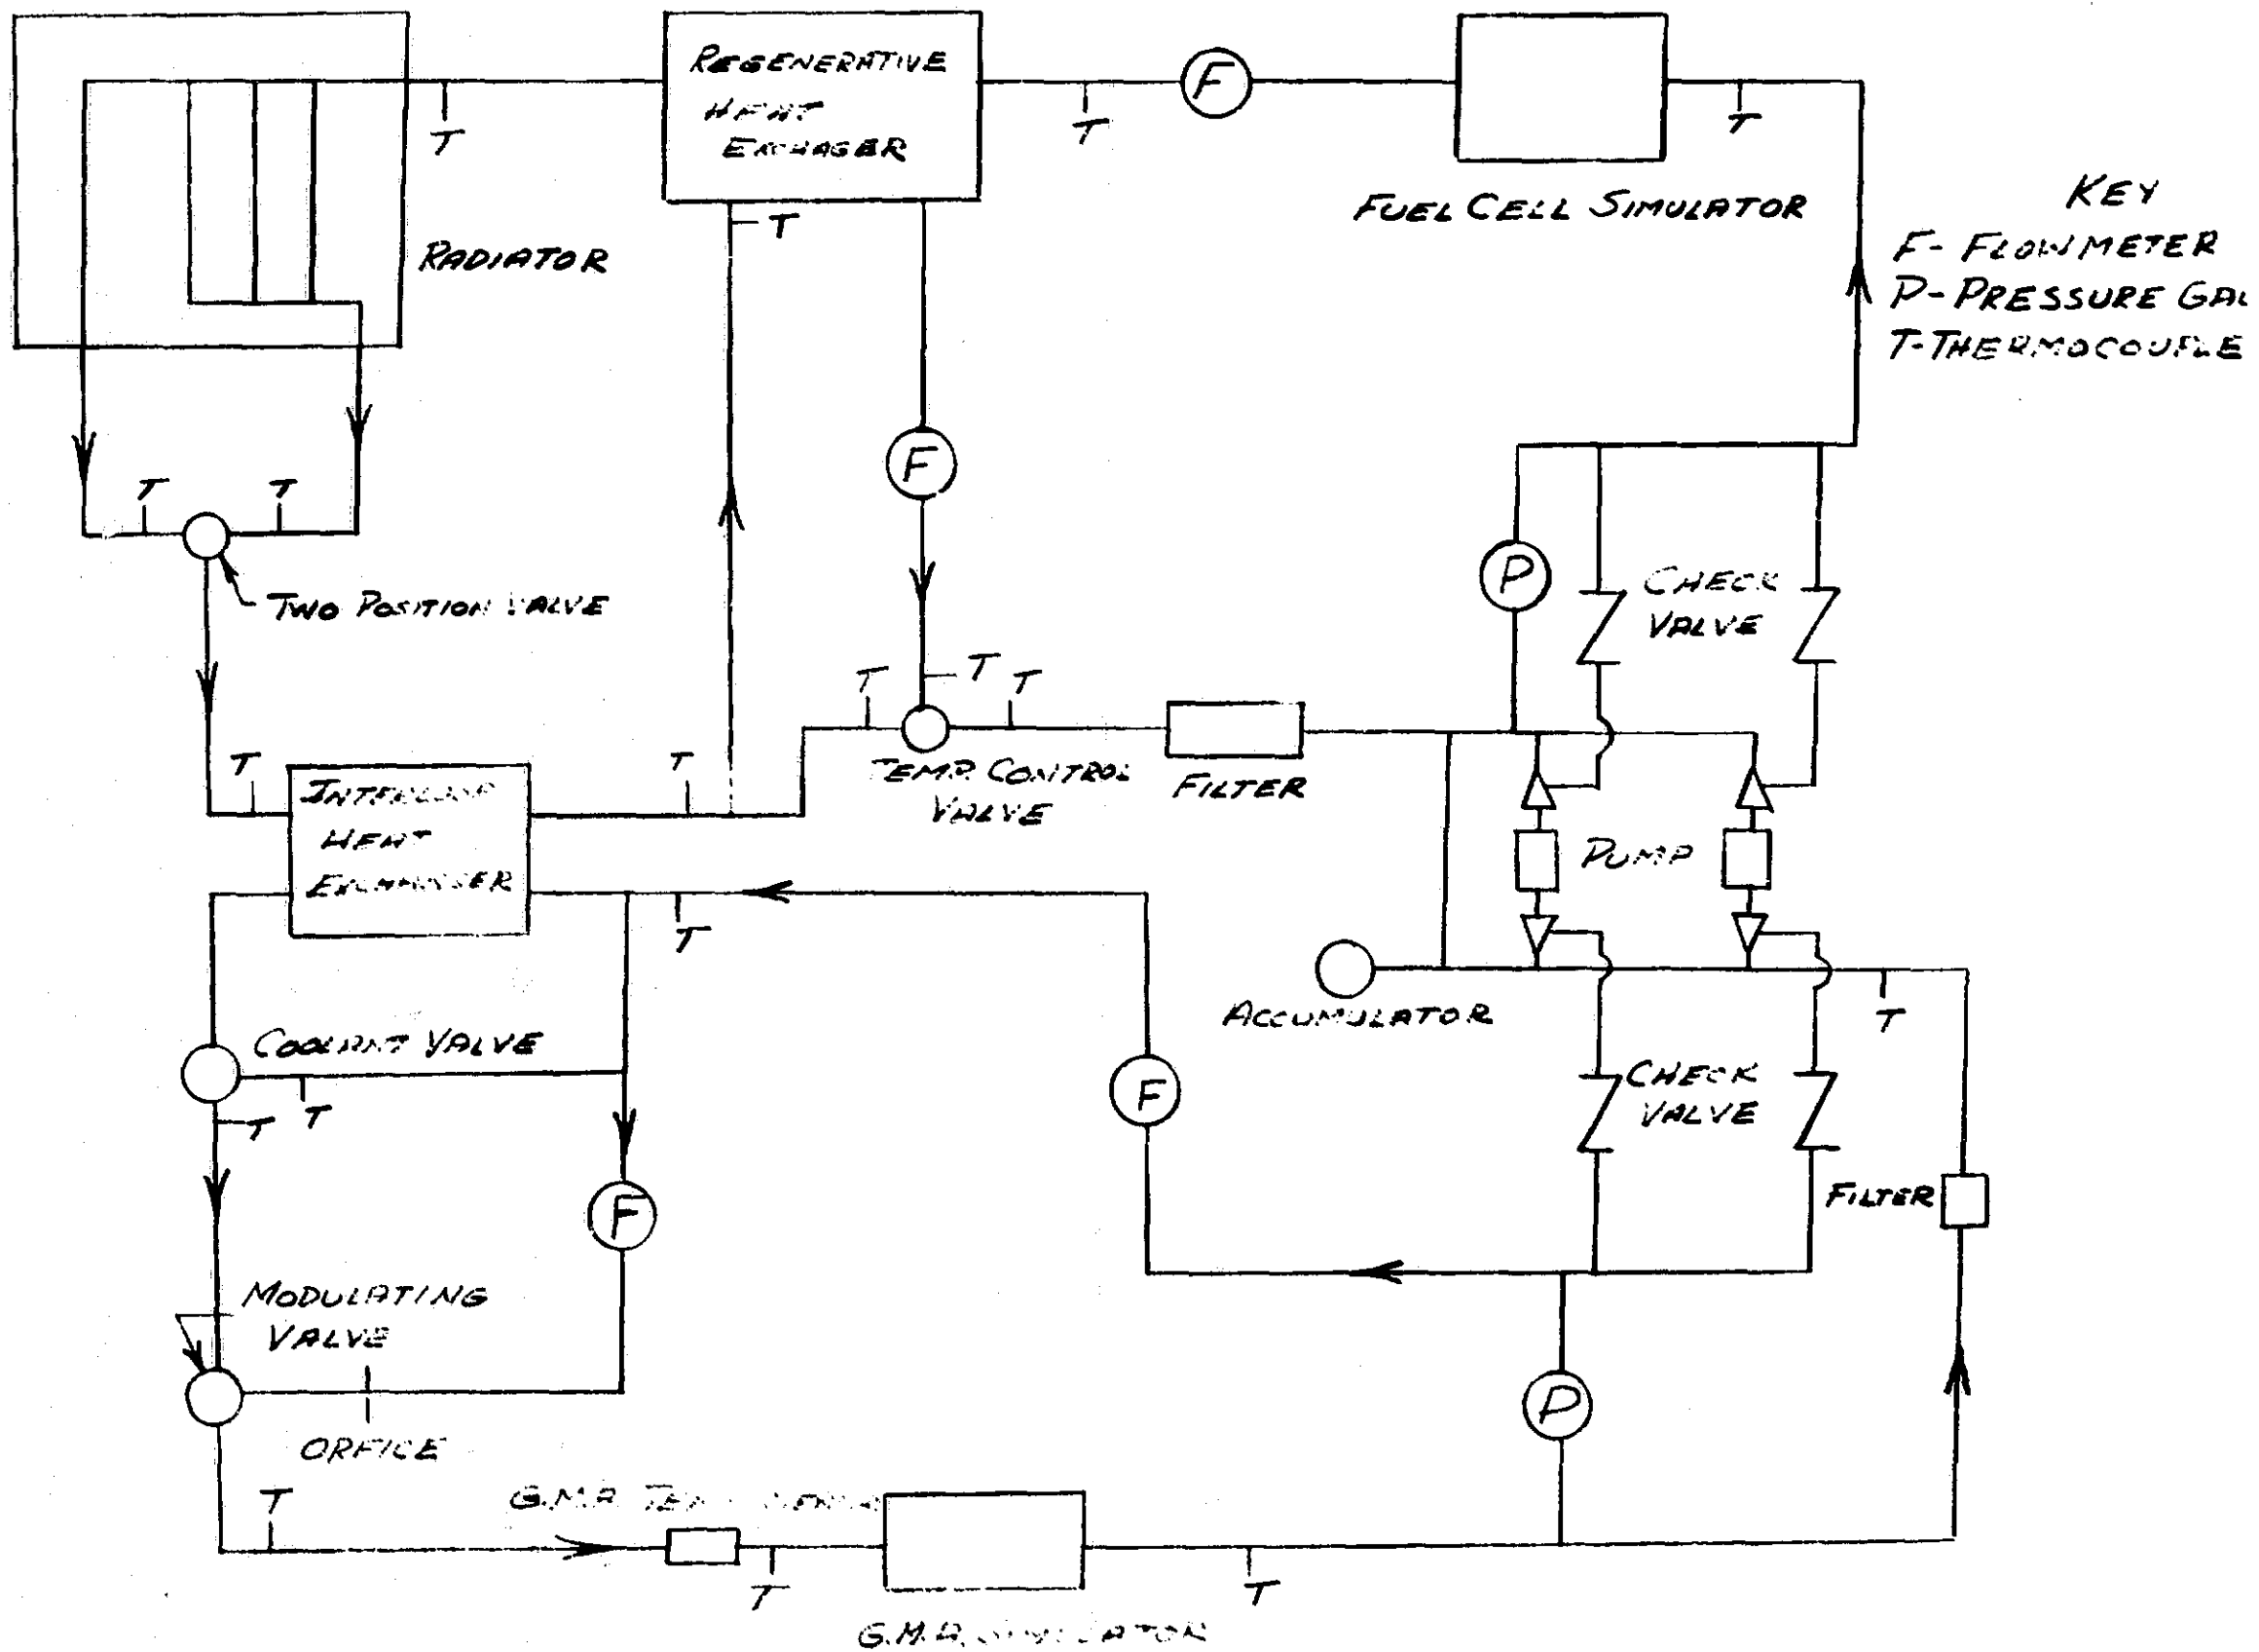 REGENERATIVE
HEAT
EXCHAGER
T
T
F
T
FUEL CELL SIMULATOR
KEY
F- FLOWMETER
P- PRESSURE GAU
T- THERMOCOUPLE
RADIATOR
T
F
T
T
TWO POSITION VALVE
P
CHECK
VALVE
T
T
T
TEMP. CONTROL
VALVE
FILTER
T
T
HEAT
PUMP
T
ACCUMULATOR
T
COOLANT VALVE
T
T
F
CHECK
VALVE
F
FILTER
MODULATING
VALVE
ORFICE
P
T
G.M.A.
T
T
G.M.A.